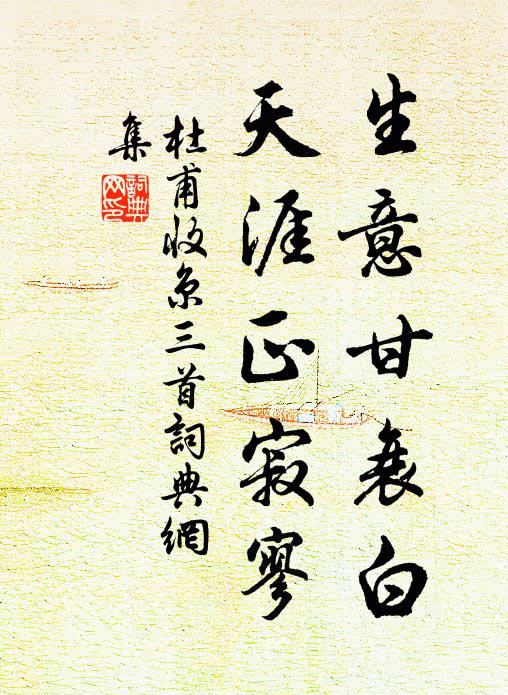 生意甘衰白
天涯正寂寥
杜甫收京三首詞典網
集
詞典
网印